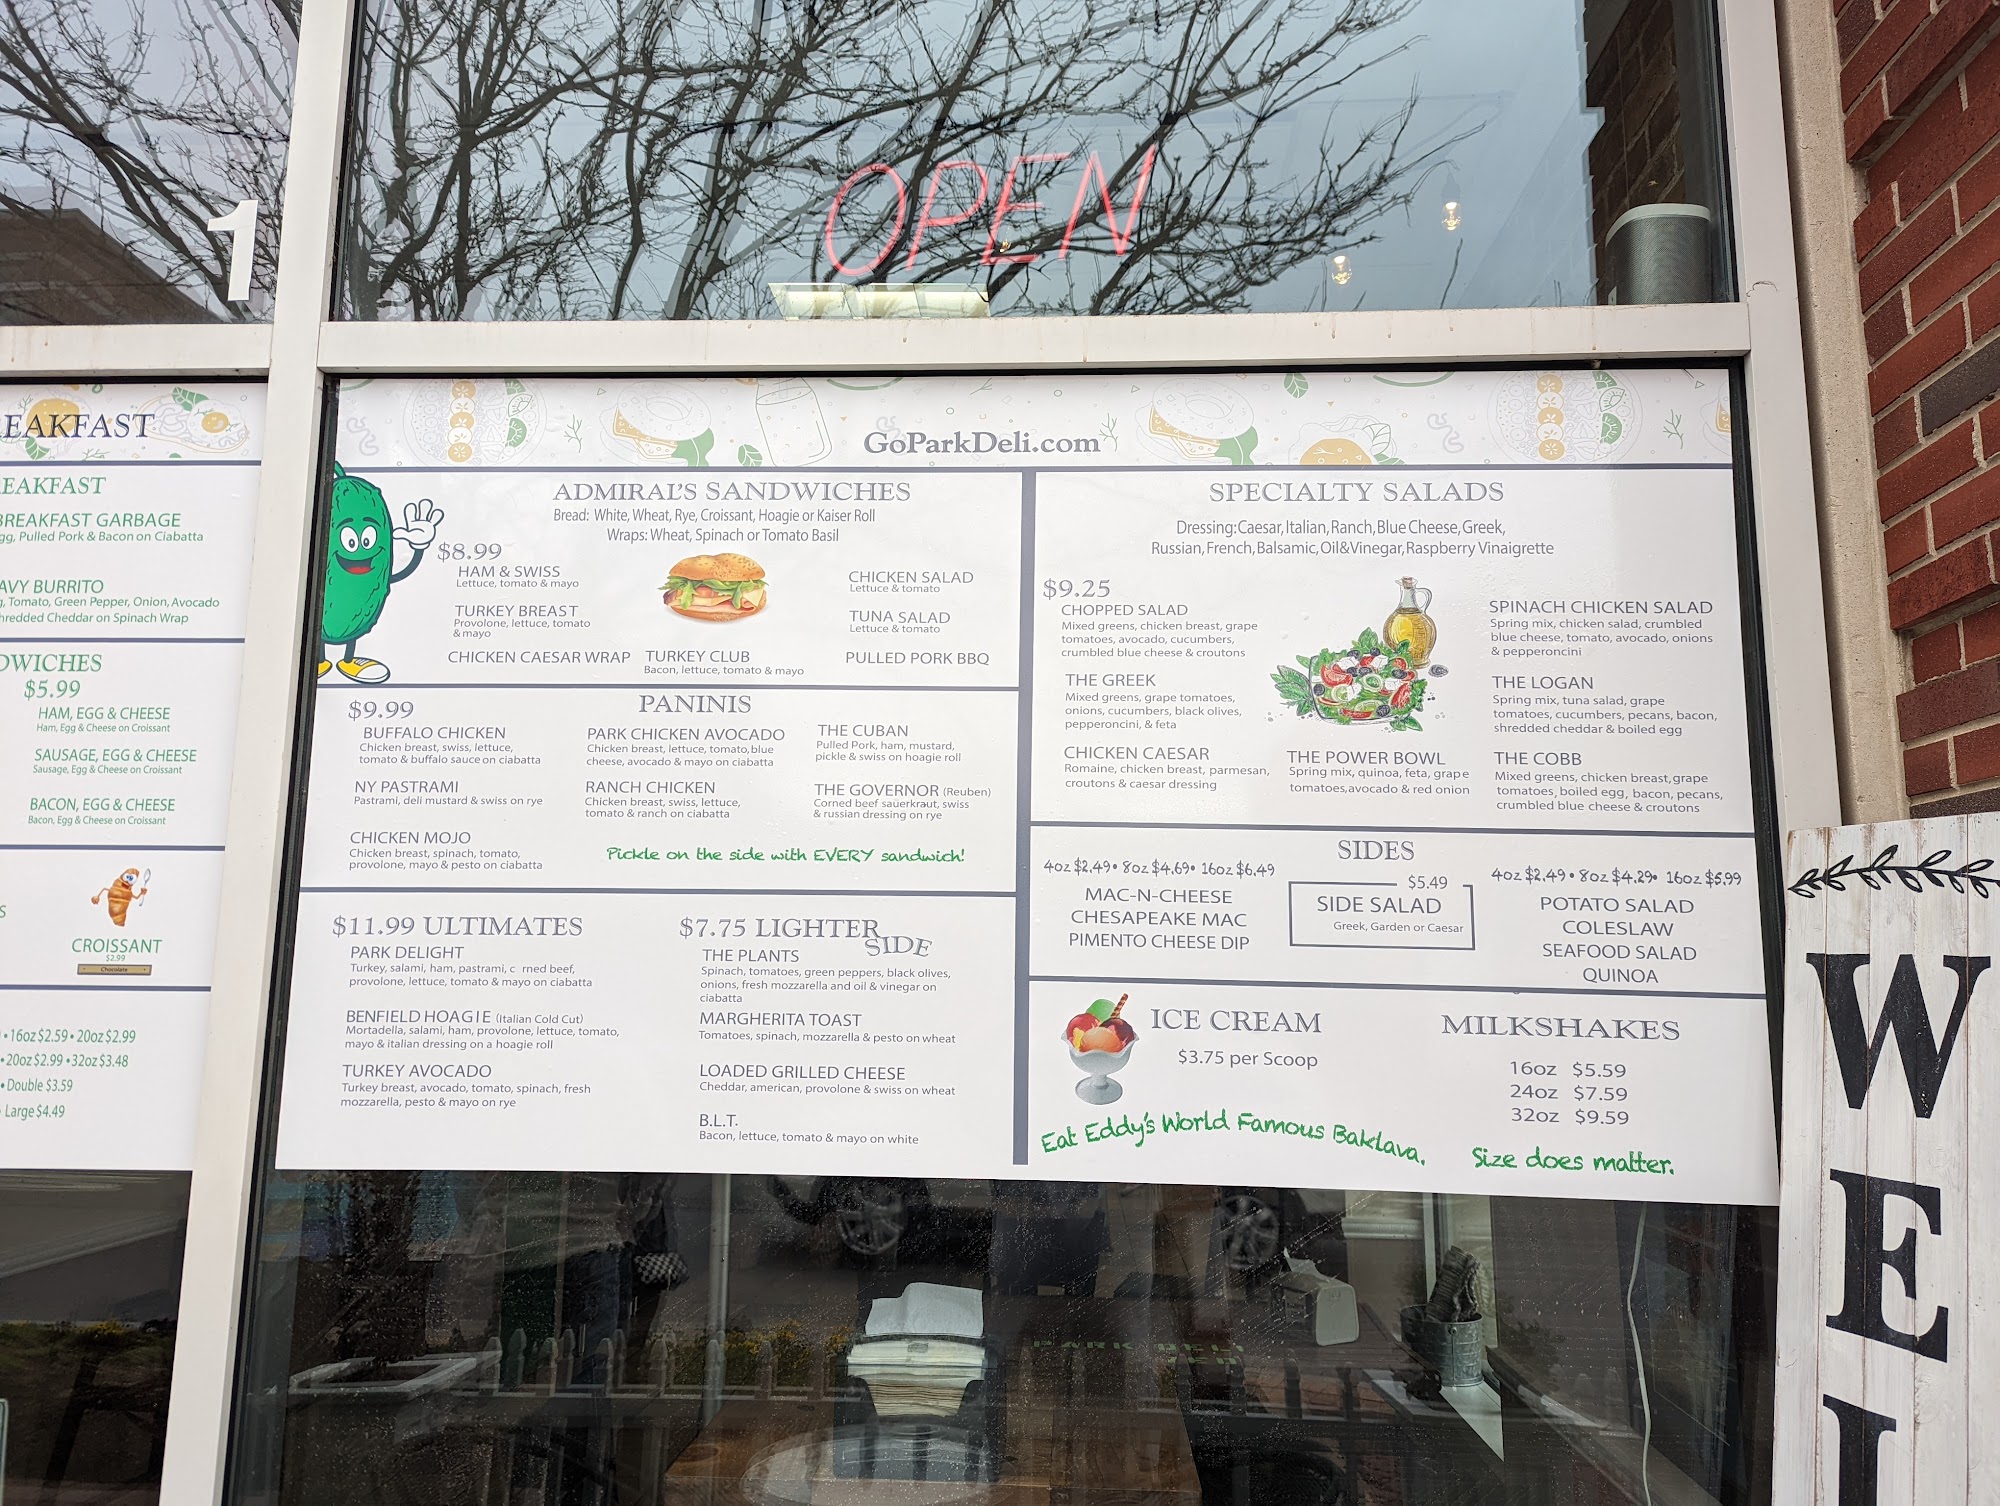 OPEN
1
EAKFAST
EAKFAST
BREAKFAST GARBAGE
gg, Pulled Pork & Bacon on Ciabatta
AVY BURRITO
g, Tomato, Green Pepper, Onion, Avocado
hredded Cheddar on Spinach Wrap
DWICHES
$5.99
HAM, EGG & CHEESE
Ham, Egg & Cheese on Croissant
SAUSAGE, EGG & CHEESE
Sausage, Egg & Cheese on Croissant
BACON, EGG & CHEESE
Bacon, Egg & Cheese on Croissant
S
CROISSANT
$2.99
Chocolate
• 16oz $2.59 • 20oz $2.99
• 20oz $2.99 • 32oz $3.48
• Double $3.59
Large $4.49
GoParkDeli.com
ADMIRAL'S SANDWICHES
Bread: White, Wheat, Rye, Croissant, Hoagie or Kaiser Roll
Wraps: Wheat, Spinach or Tomato Basil
$8.99
HAM & SWISS
Lettuce, tomato & mayo
TURKEY BREAST
Provolone, lettuce, tomato
& mayo
CHICKEN CAESAR WRAP
TURKEY CLUB
Bacon, lettuce, tomato & mayo
CHICKEN SALAD
Lettuce & tomato
TUNA SALAD
Lettuce & tomato
PULLED PORK BBQ
PANINIS
$9.99
BUFFALO CHICKEN
Chicken breast, swiss, lettuce,
tomato & buffalo sauce on ciabatta
NY PASTRAMI
Pastrami, deli mustard & swiss on rye
CHICKEN MOJO
Chicken breast, spinach, tomato,
provolone, mayo & pesto on ciabatta
PARK CHICKEN AVOCADO
Chicken breast, lettuce, tomato, blue
cheese, avocado & mayo on ciabatta
RANCH CHICKEN
Chicken breast, swiss, lettuce,
tomato & ranch on ciabatta
THE CUBAN
Pulled Pork, ham, mustard,
pickle & swiss on hoagie roll
THE GOVERNOR (Reuben)
Corned beef sauerkraut, swiss
& russian dressing on rye
Pickle on the side with EVERY sandwich!
$11.99 ULTIMATES
PARK DELIGHT
Turkey, salami, ham, pastrami, c rned beef,
provolone, lettuce, tomato & mayo on ciabatta
BENFIELD HOAGIE (Italian Cold Cut)
Mortadella, salami, ham, provolone, lettuce, tomato,
mayo & italian dressing on a hoagie roll
TURKEY AVOCADO
Turkey breast, avocado, tomato, spinach, fresh
mozzarella, pesto & mayo on rye
$7.75 LIGHTER
SIDE
THE PLANTS
Spinach, tomatoes, green peppers, black olives,
onions, fresh mozzarella and oil & vinegar on
ciabatta
MARGHERITA TOAST
Tomatoes, spinach, mozzarella & pesto on wheat
LOADED GRILLED CHEESE
Cheddar, american, provolone & swiss on wheat
B.L.T.
Bacon, lettuce, tomato & mayo on white
SPECIALTY SALADS
Dressing: Caesar, Italian, Ranch, Blue Cheese, Greek,
Russian, French, Balsamic, Oil&Vinegar, Raspberry Vinaigrette
$9.25
CHOPPED SALAD
Mixed greens, chicken breast, grape
tomatoes, avocado, cucumbers,
crumbled blue cheese & croutons
THE GREEK
Mixed greens, grape tomatoes,
onions, cucumbers, black olives,
pepperoncini, & feta
CHICKEN CAESAR
Romaine, chicken breast, parmesan,
croutons & caesar dressing
THE POWER BOWL
Spring mix, quinoa, feta, grape
tomatoes, avocado & red onion
SPINACH CHICKEN SALAD
Spring mix, chicken salad, crumbled
blue cheese, tomato, avocado, onions
& pepperoncini
THE LOGAN
Spring mix, tuna salad, grape
tomatoes, cucumbers, pecans, bacon,
shredded cheddar & boiled egg
THE COBB
Mixed greens, chicken breast, grape
tomatoes, boiled egg, bacon, pecans,
crumbled blue cheese & croutons
SIDES
4oz $2.49 • 8oz $4.69 • 16oz $6.49
MAC-N-CHEESE
CHESAPEAKE MAC
PIMENTO CHEESE DIP
$5.49
SIDE SALAD
Greek, Garden or Caesar
4oz $2.49 • 8oz $4.29 • 16oz $5.99
POTATO SALAD
COLESLAW
SEAFOOD SALAD
QUINOA
ICE CREAM
$3.75 per Scoop
MILKSHAKES
16oz $5.59
24oz $7.59
32oz $9.59
Eat Eddy's World Famous Baklava.
Size does matter.
W
E
L